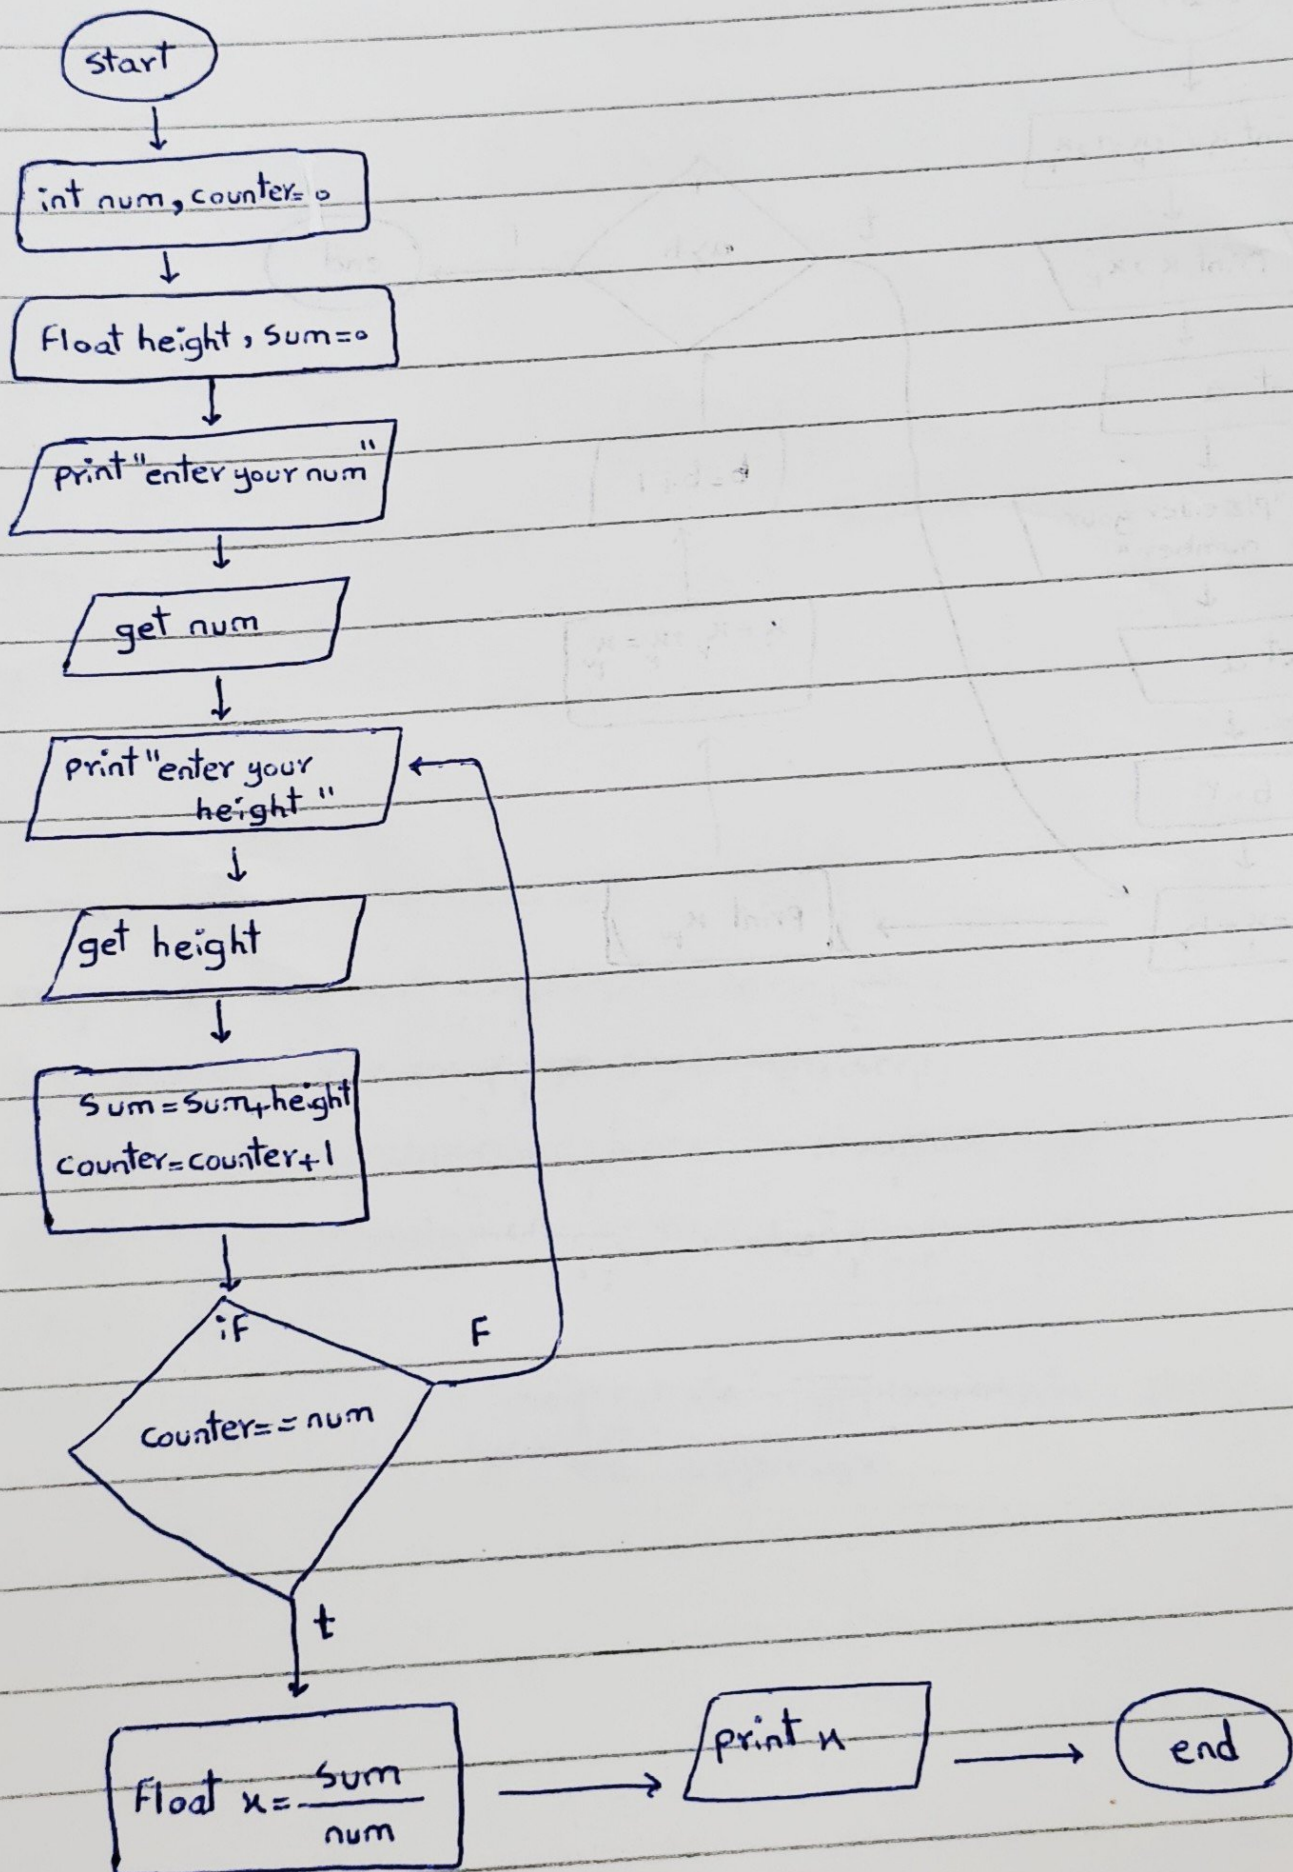 start
int num, counter=0
Float height, sum=0
print "enter your num"
get num
print "enter your
height"
get height
sum=sum+height
counter=counter+1
if
F
counter==num
t
Float x=sum/num
print x
end